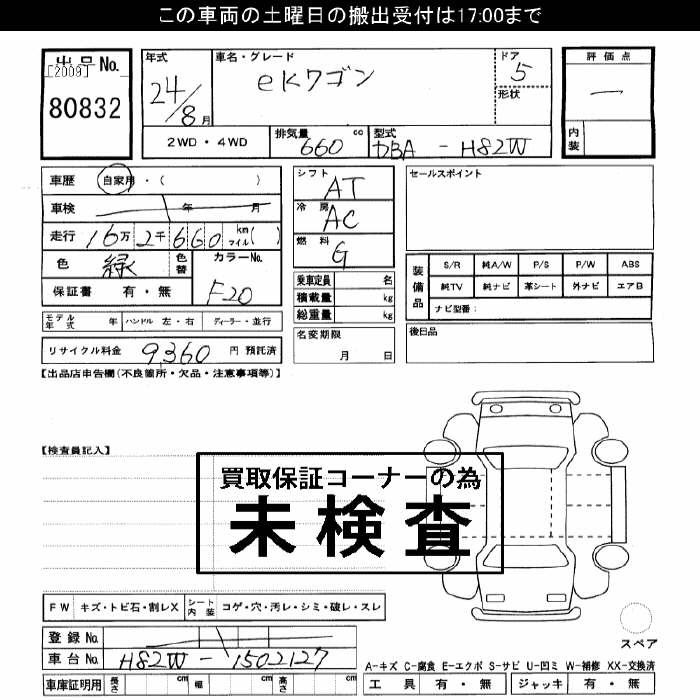 この車両の土曜日の搬出受付は17:00まで
出品No.
[2009]
80832
年式
24/8月
車名・グレード
eKワゴン
ドア
5
形状
評価点
―
内装
2WD・4WD
排気量
660 cc
型式
DBA - H82W
車歴 自家用・( )
車検 年 月
走行 16万2千660 km マイル( )
色 緑 色替
カラーNo.
F20
保証書 有・無
モデル年式 年 ハンドル 左・右 ディーラー・並行
リサイクル料金 9,360 円 預託済
シフト
AT
冷房
AC
燃料
G
乗車定員 名
積載量 kg
総重量 kg
名変期限
月 日
セールスポイント
装備品
S/R 純A/W P/S P/W ABS
純TV 純ナビ 革シート 外ナビ エアB
ナビ型番:
後日品
【出品店申告欄(不良箇所・欠品・注意事項等)】
【検査員記入】
買取保証コーナーの為
未検査
FW キズ・トビ石・割レX シート内装 コゲ・穴・汚レ・シミ・破レ・スレ
登録No.
車台No. H82W - 1502127
車庫証明用 長さ cm 幅 cm 高さ cm
スペア
A-キズ C-腐食 E-エクボ S-サビ U-凹ミ W-補修 XX-交換済
工具 有・無 ジャッキ 有・無